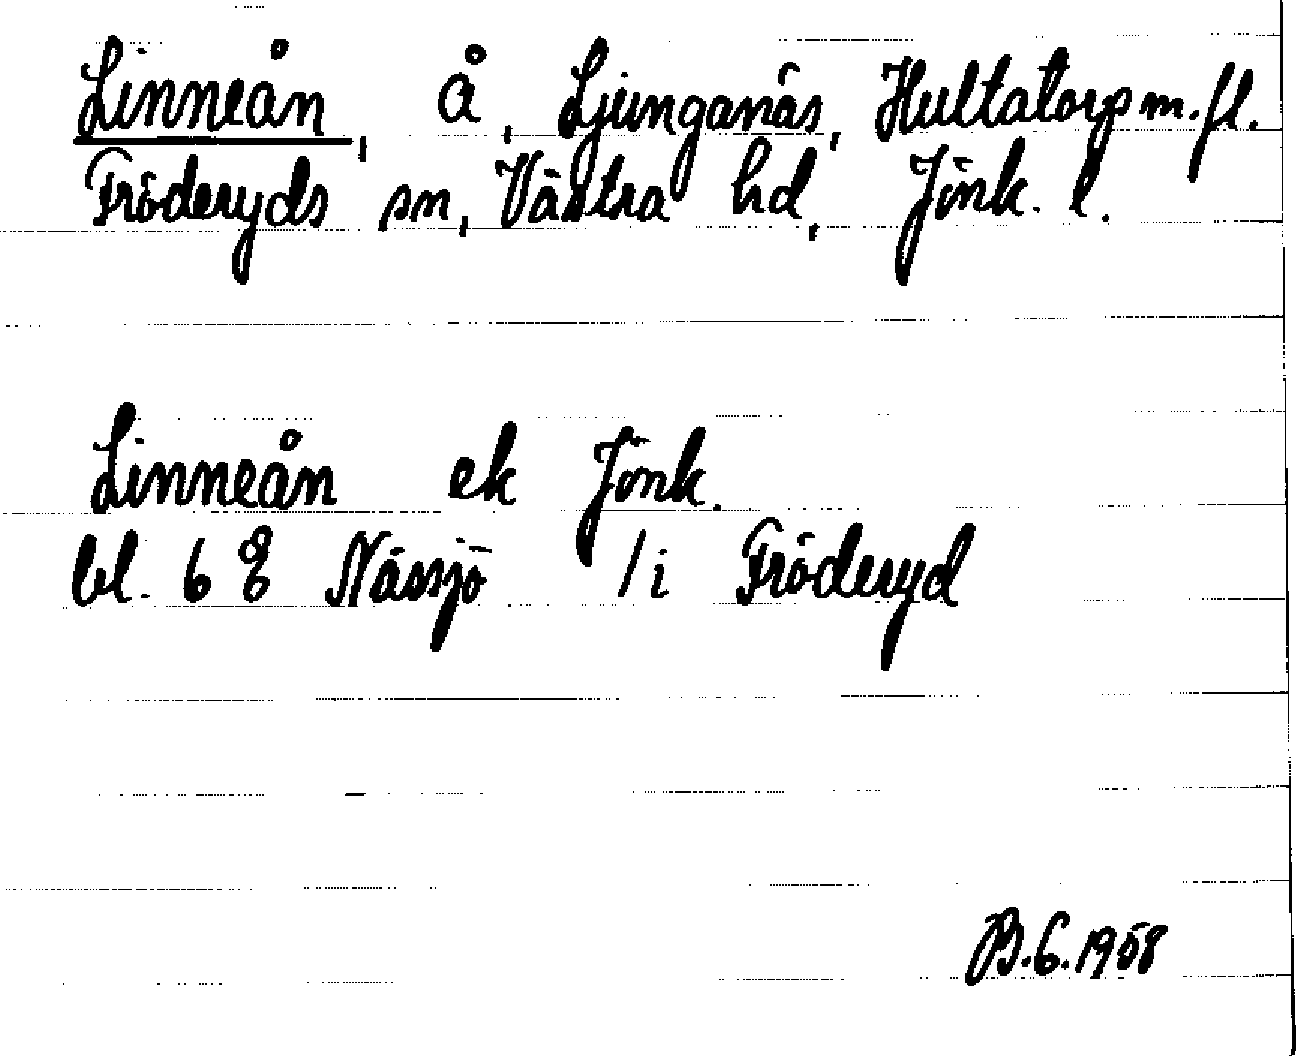 Linneån, å, Ljunganäs, Hultatorp m.fl.
Fröderyds sn, Västra hd, Jönk. l.
Linneån ek Jönk.
bl. 6 8 Nässjö / i Fröderyd
B.G.1958